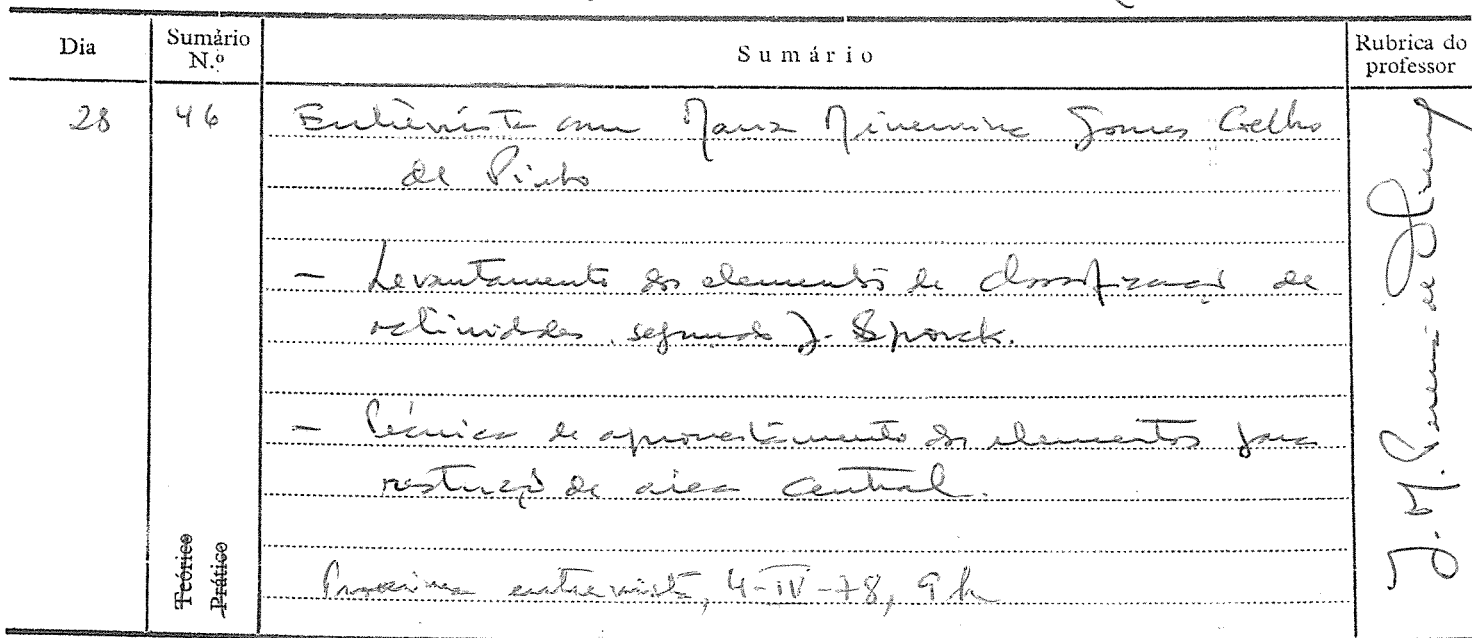 Dia
Sumário N.º
Sumário
Rubrica do professor
28
46
Entrevista com Maria Minervina Gomes Coelho
de Pinho
- Levantamento dos elementos de classificação de
actividades segundo J. Sporck.
- Técnica de aproveitamento dos elementos para
de área central.
Teórico
Prático
Proxima entrevista, 4-IV-78, 9 h
J. M. Pereira de Oliveira